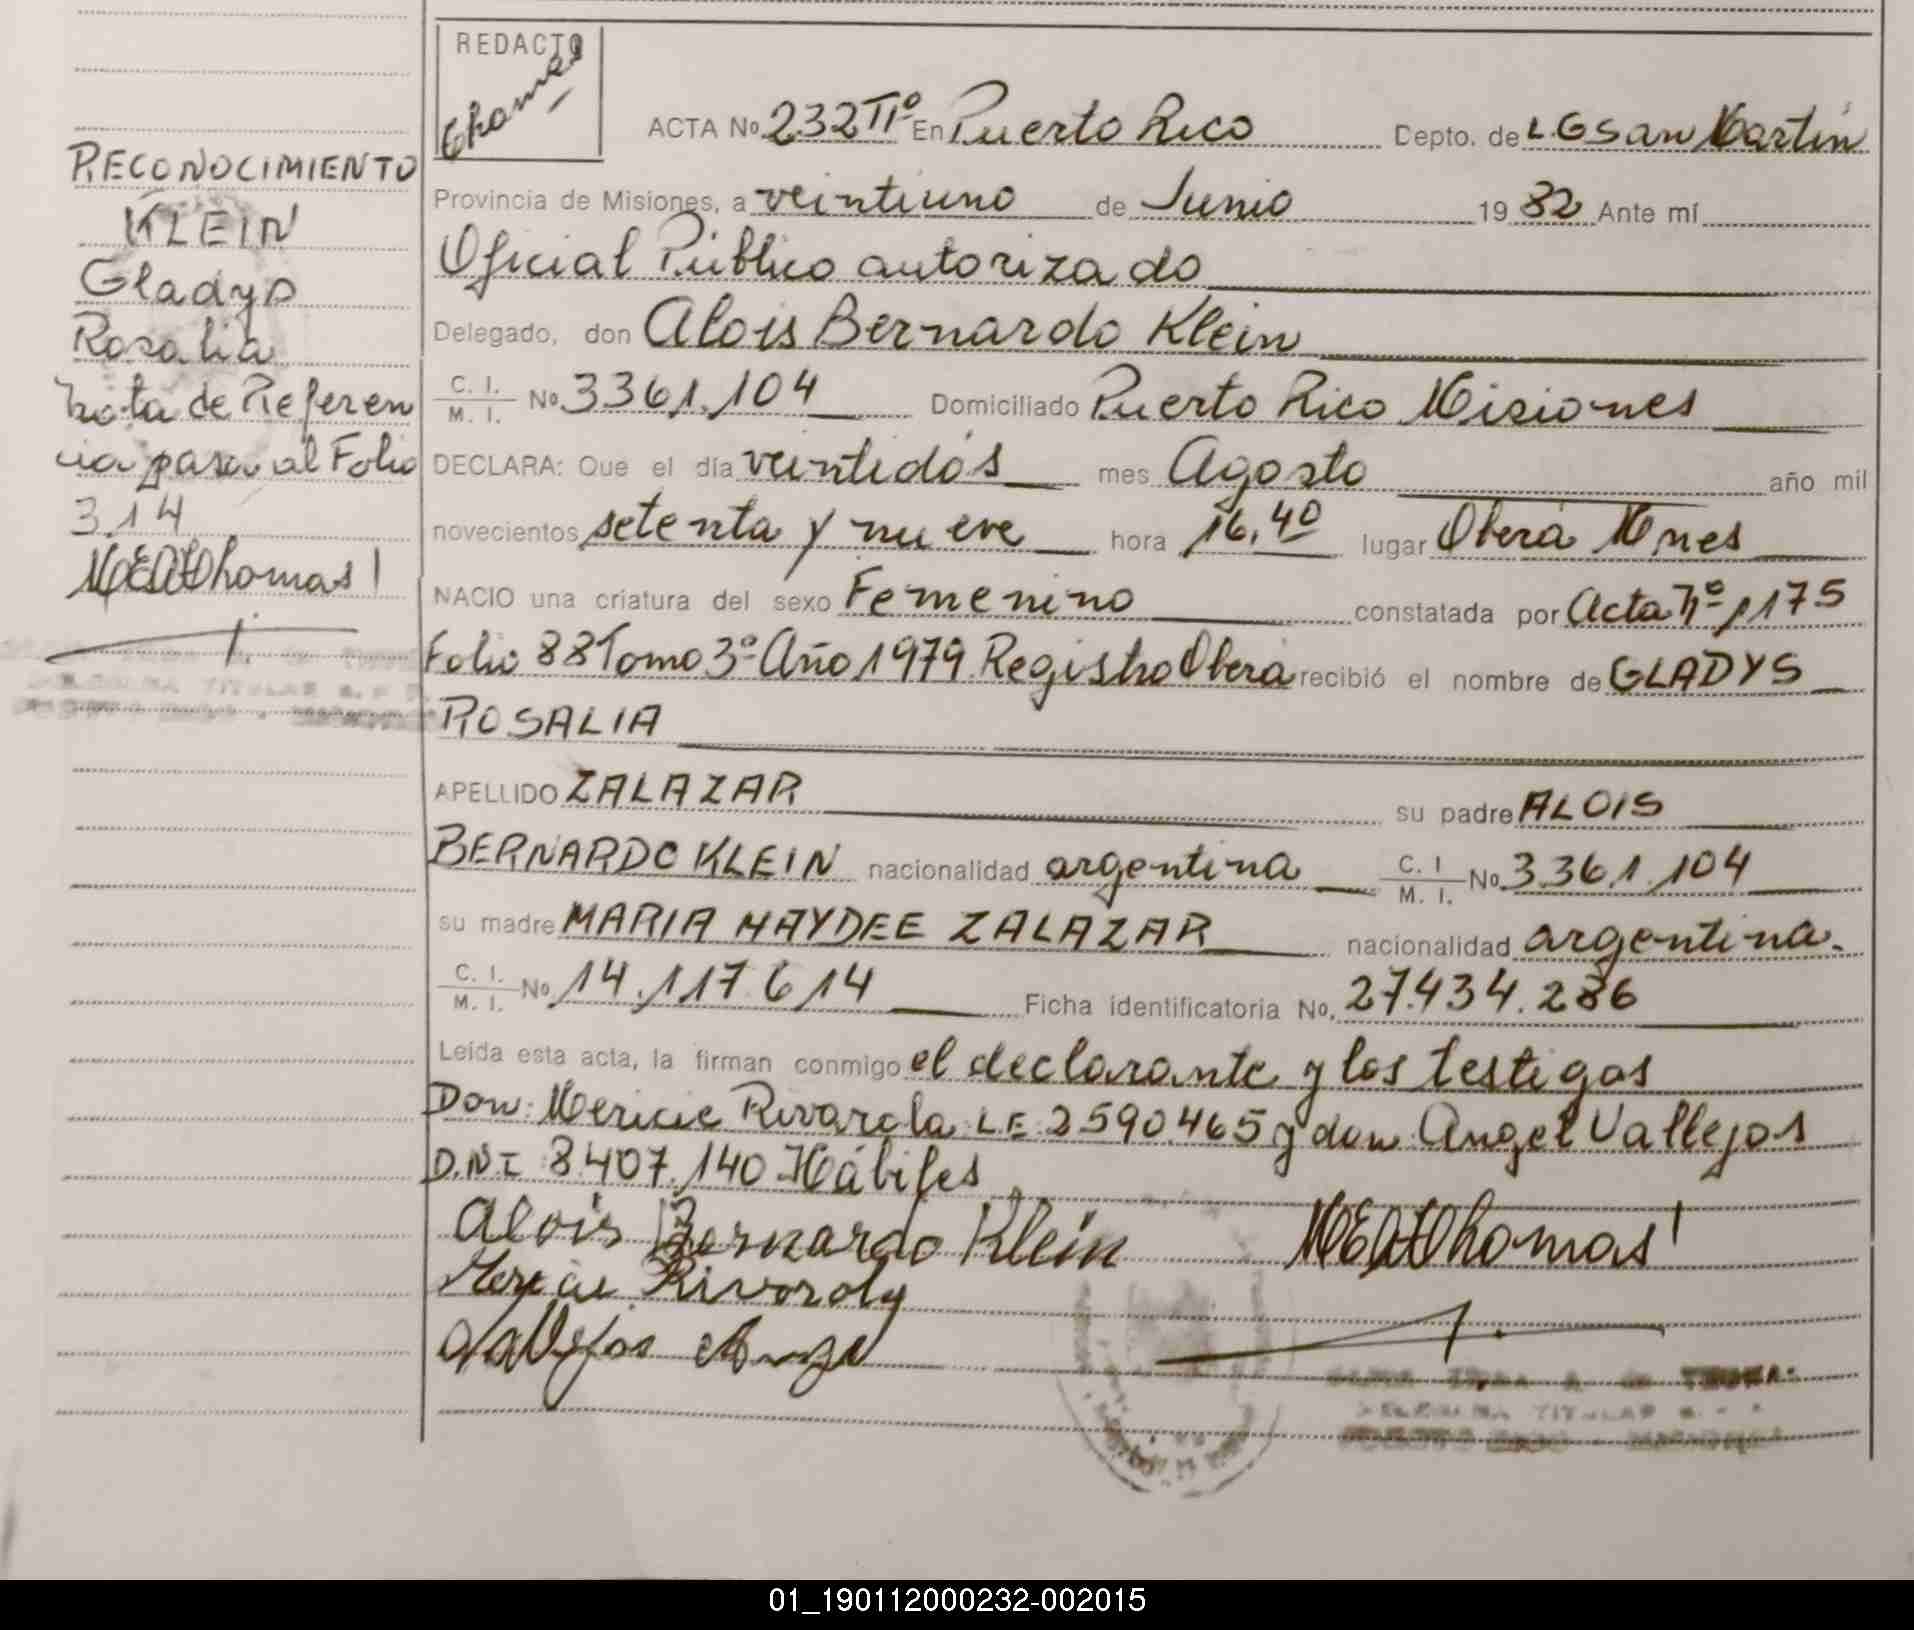 RECONOCIMIENTO
KLEIN
Gladys
Rosalia
Nota de Referen
cia pasa al Folio
314
REDACTO
Thomas
ACTA No 232 Tº En Puerto Rico Depto. de L.G San Martín
Provincia de Misiones, a veintiuno de Junio 19 82 Ante mí
Oficial Público autorizado
Delegado, don Alois Bernardo Klein
C. I. / M. I. No 3361.104 Domiciliado Puerto Rico Misiones
DECLARA: Que el día veintidós mes Agosto año mil
novecientos setenta y nueve hora 16,40 lugar Oberá Mnes
NACIO una criatura del sexo Femenino constatada por Acta Nº 1175
Folio 88 Tomo 3º Año 1979 Registro Oberá recibió el nombre de GLADYS
ROSALIA
APELLIDO ZALAZAR su padre ALOIS
BERNARDO KLEIN nacionalidad argentina C. I / M. I. No 3361.104
su madre MARIA HAYDEE ZALAZAR nacionalidad argentina.
C. I. / M. I. No 14.117.614 Ficha identificatoria No. 27.434.286
Leída esta acta, la firman conmigo el declarante y los testigos
Don: Rivarola LE 2590465 y don Angel Vallejos
D.N.I 8407.140 Hábiles
Alois Bernardo Klein
Rivarola
Vallejos Angel
01_190112000232-002015